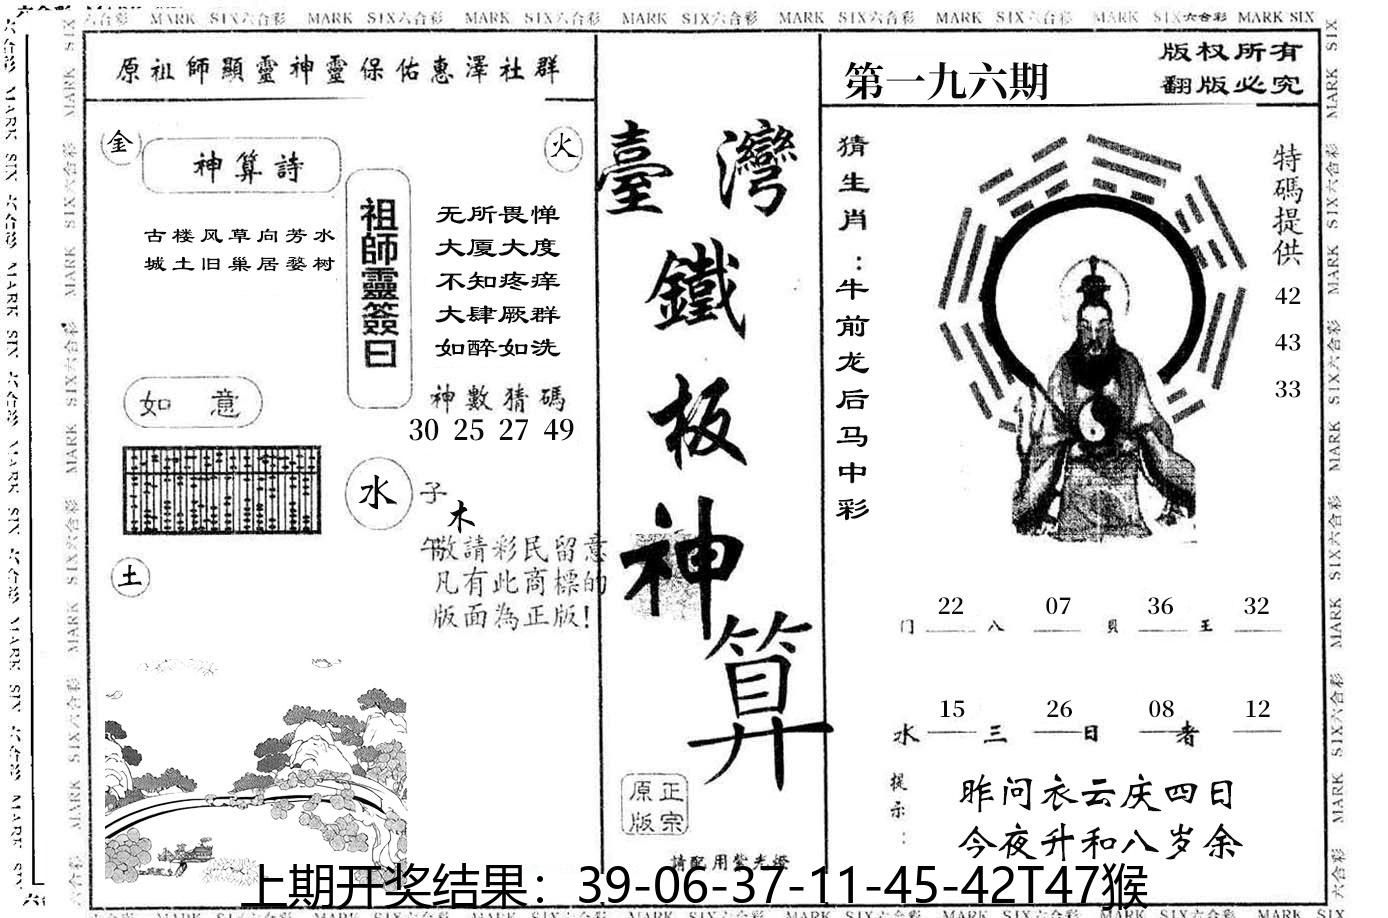 MARK SIX六合彩 MARK SIX六合彩 MARK SIX六合彩 MARK SIX六合彩 MARK SIX六合彩 MARK SIX六合彩 MARK SIX六合彩 MARK SIX
原祖師顯靈神靈保佑惠澤社群
金
火
神算詩
古楼风草向芳水
城土旧巢居婺树
祖師靈簽曰
无所畏惮
大厦大度
不知疼痒
大肆厥群
如醉如洗
如意
神數猜碼
30 25 27 49
水
子
木
午
土
敬請彩民留意
凡有此商標的
版面為正版!
臺灣
鐵
板
神
算
正宗
原版
請配用紫光燈
第一九六期
版权所有
翻版必究
猜生肖:牛前龙后马中彩
特碼提供
42
43
33
22 07 36 32
门 八 貝 王
15 26 08 12
水 三 日 者
提示:
昨问衣云庆四日
今夜升和八岁余
上期开奖结果：39-06-37-11-45-42T47猴